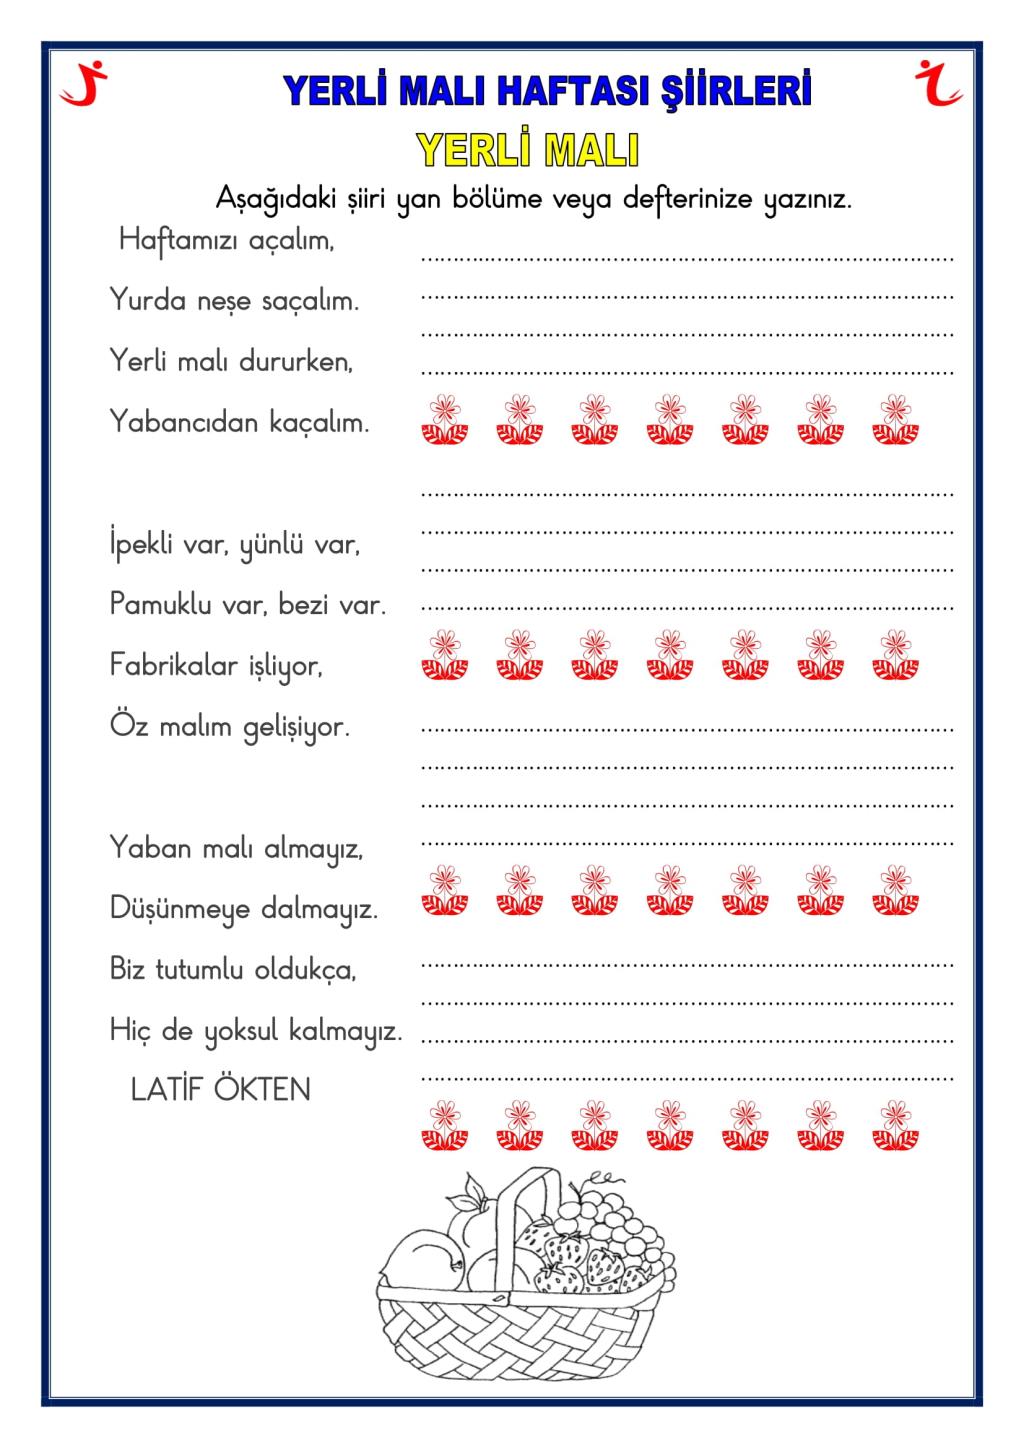 YERLİ MALI HAFTASI ŞİİRLERİ
YERLİ MALI
Aşağıdaki şiiri yan bölüme veya defterinize yazınız.
Haftamızı açalım,
Yurda neşe saçalım.
Yerli malı dururken,
Yabancıdan kaçalım.
İpekli var, yünlü var,
Pamuklu var, bezi var.
Fabrikalar işliyor,
Öz malım gelişiyor.
Yaban malı almayız,
Düşünmeye dalmayız.
Biz tutumlu oldukça,
Hiç de yoksul kalmayız.
LATİF ÖKTEN